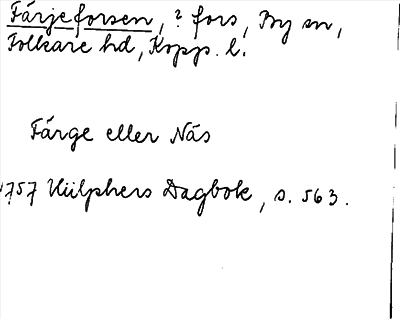 Färjeforsen, ? fors, By sn,
Folkare hd, Kopp. l.
Färge eller Näs
1757 Hülphers Dagbok, s. 563.